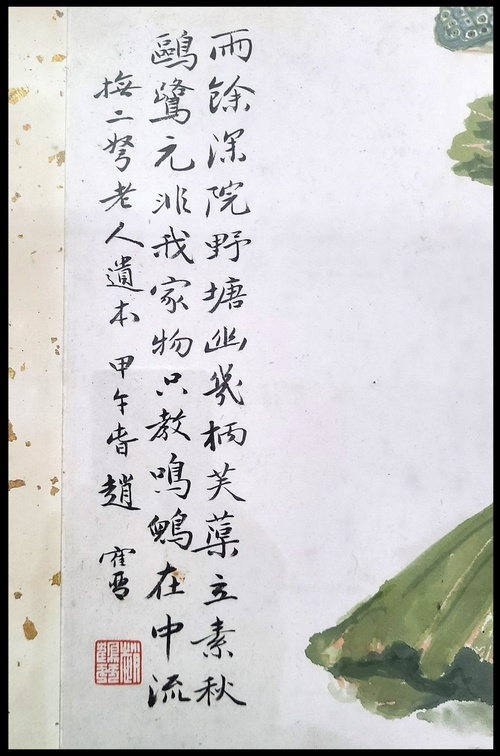 雨餘深院野塘幽幾柄芙蕖立素秋
鷗鷺元非我家物只教鳴在中流
撫二弩老人遺本 甲午春 趙